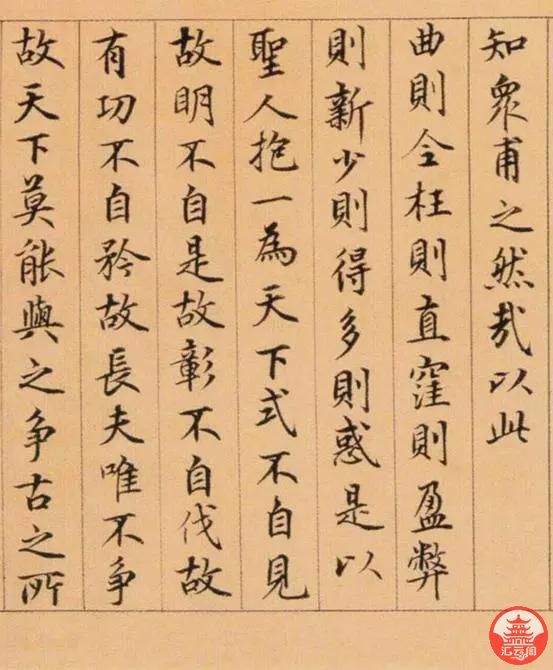 知衆甫之然哉以此
曲則全枉則直窪則盈弊
則新少則得多則惑是以
聖人抱一為天下式不自見
故明不自是故彰不自伐故
有功不自矜故長夫唯不争
故天下莫能與之争古之所
汇云阁